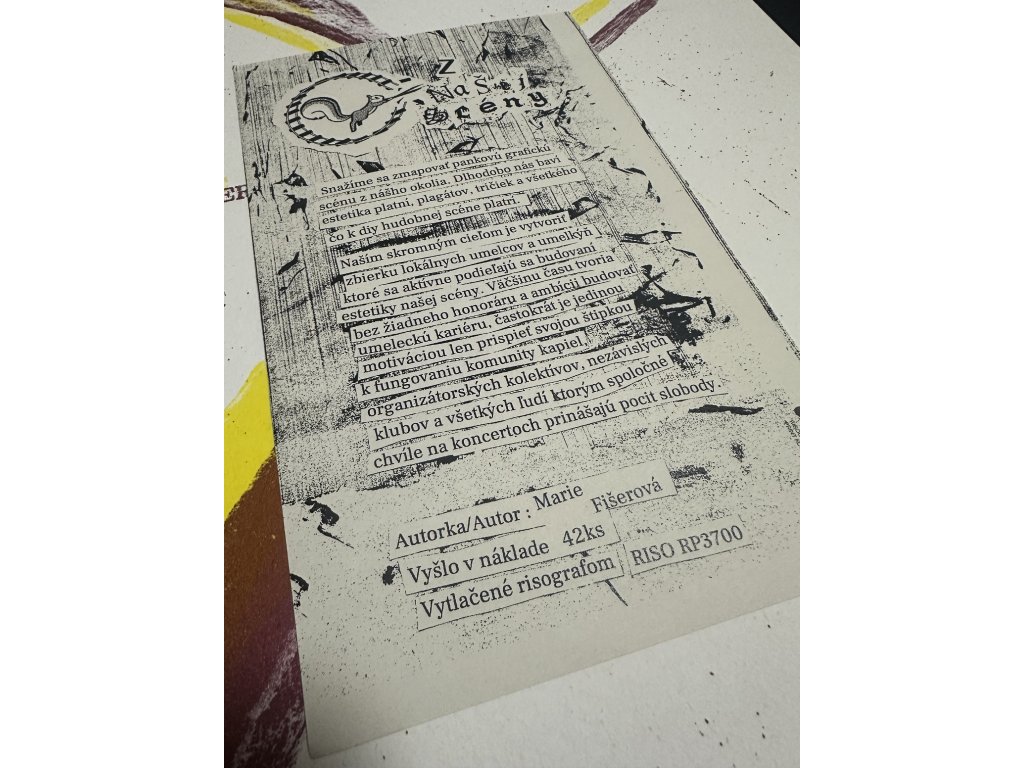 Z
Našej
scény
Snažíme sa zmapovať pankovú grafickú
scénu z nášho okolia. Dlhodobo nás baví
estetika platní, plagátov, tričiek a všetkého
čo k diy hudobnej scéne platrí.
Naším skromným cieľom je vytvoriť
zbierku lokálnych umelcov a umelkýň
ktoré sa aktívne podieľajú sa budovaní
estetiky našej scény. Väčšinu času tvoria
bez žiadneho honoráru a ambícií budovať
umeleckú kariéru, častokrát je jedinou
motiváciou len prispieť svojou štipkou
k fungovaniu komunity kapiel,
organizátorských kolektívov, nezávislých
klubov a všetkých ľudí ktorým spoločné
chvíle na koncertoch prinášajú pocit slobody.
Autorka/Autor : Marie Fišerová
Vyšlo v náklade 42ks
Vytlačené risografom RISO RP3700